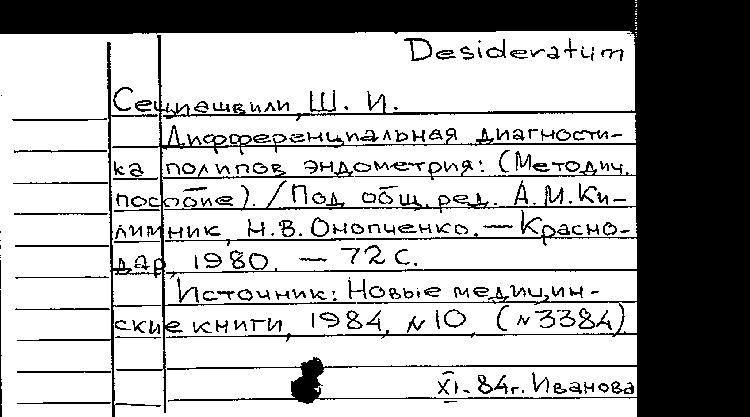 Desideratum
Сециашвили, Ш. И.
Дифференциальная диагности-
ка полипов эндометрия: (Методич.
пособие). / Под общ. ред. А.М. Ки-
лимник, Н.В. Онопченко. — Красно-
дар, 1980. — 72 с.
Источник: Новые медицин-
ские книги, 1984, № 10, (№ 3384)
XI-84г. Иванова